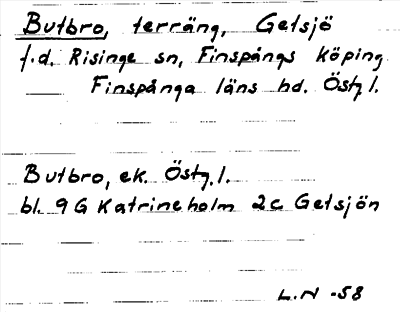 Butbro, terräng, Getsjö
f.d. Risinge sn, Finspångs köping
Finspånga läns hd. Östg.l.
Butbro, ek. Östg.l.
bl. 9 G Katrineholm 2c Getsjön
L.N -58